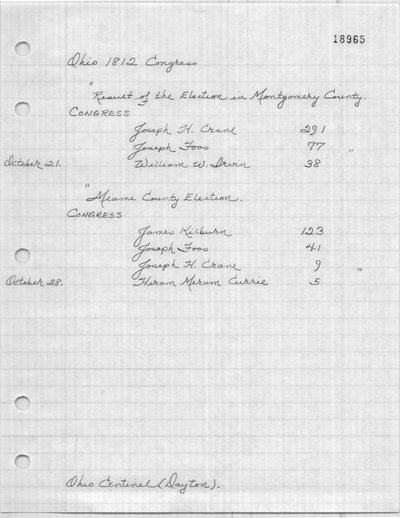 18965
Ohio 1812 Congress
"Result of the Election in Montgomery County.
CONGRESS
Joseph H. Crane 291
Joseph Foos 77 "
October 21. William W. Irwin 38
"Miami County Election.
CONGRESS
James Kilburn 123
Joseph Foos 41
Joseph H. Crane 9 "
October 28. Hiram Miram Currie 5
Ohio Centinel (Dayton).